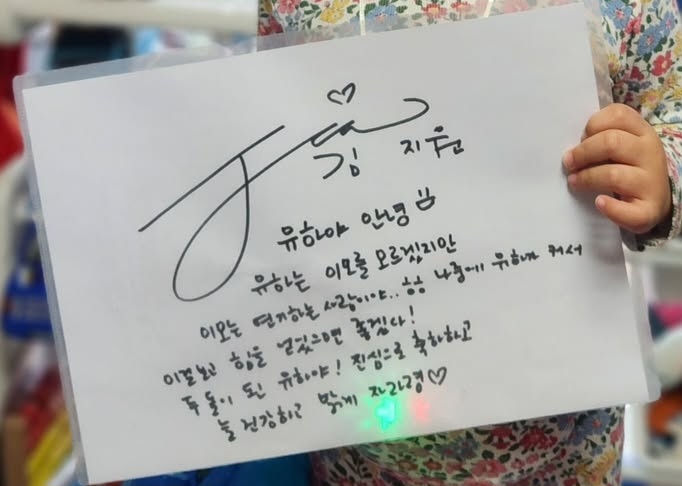 김 지원
유하야 안녕
유하는 이모를 모르겠지만
이모는 연기하는 사람이야.. ㅎㅎ 나중에 유하가 커서
이걸 보고 힘을 얻었으면 좋겠다!
두 돌이 된 유하야! 진심으로 축하하고
늘 건강하고 맑게 자라렴♡